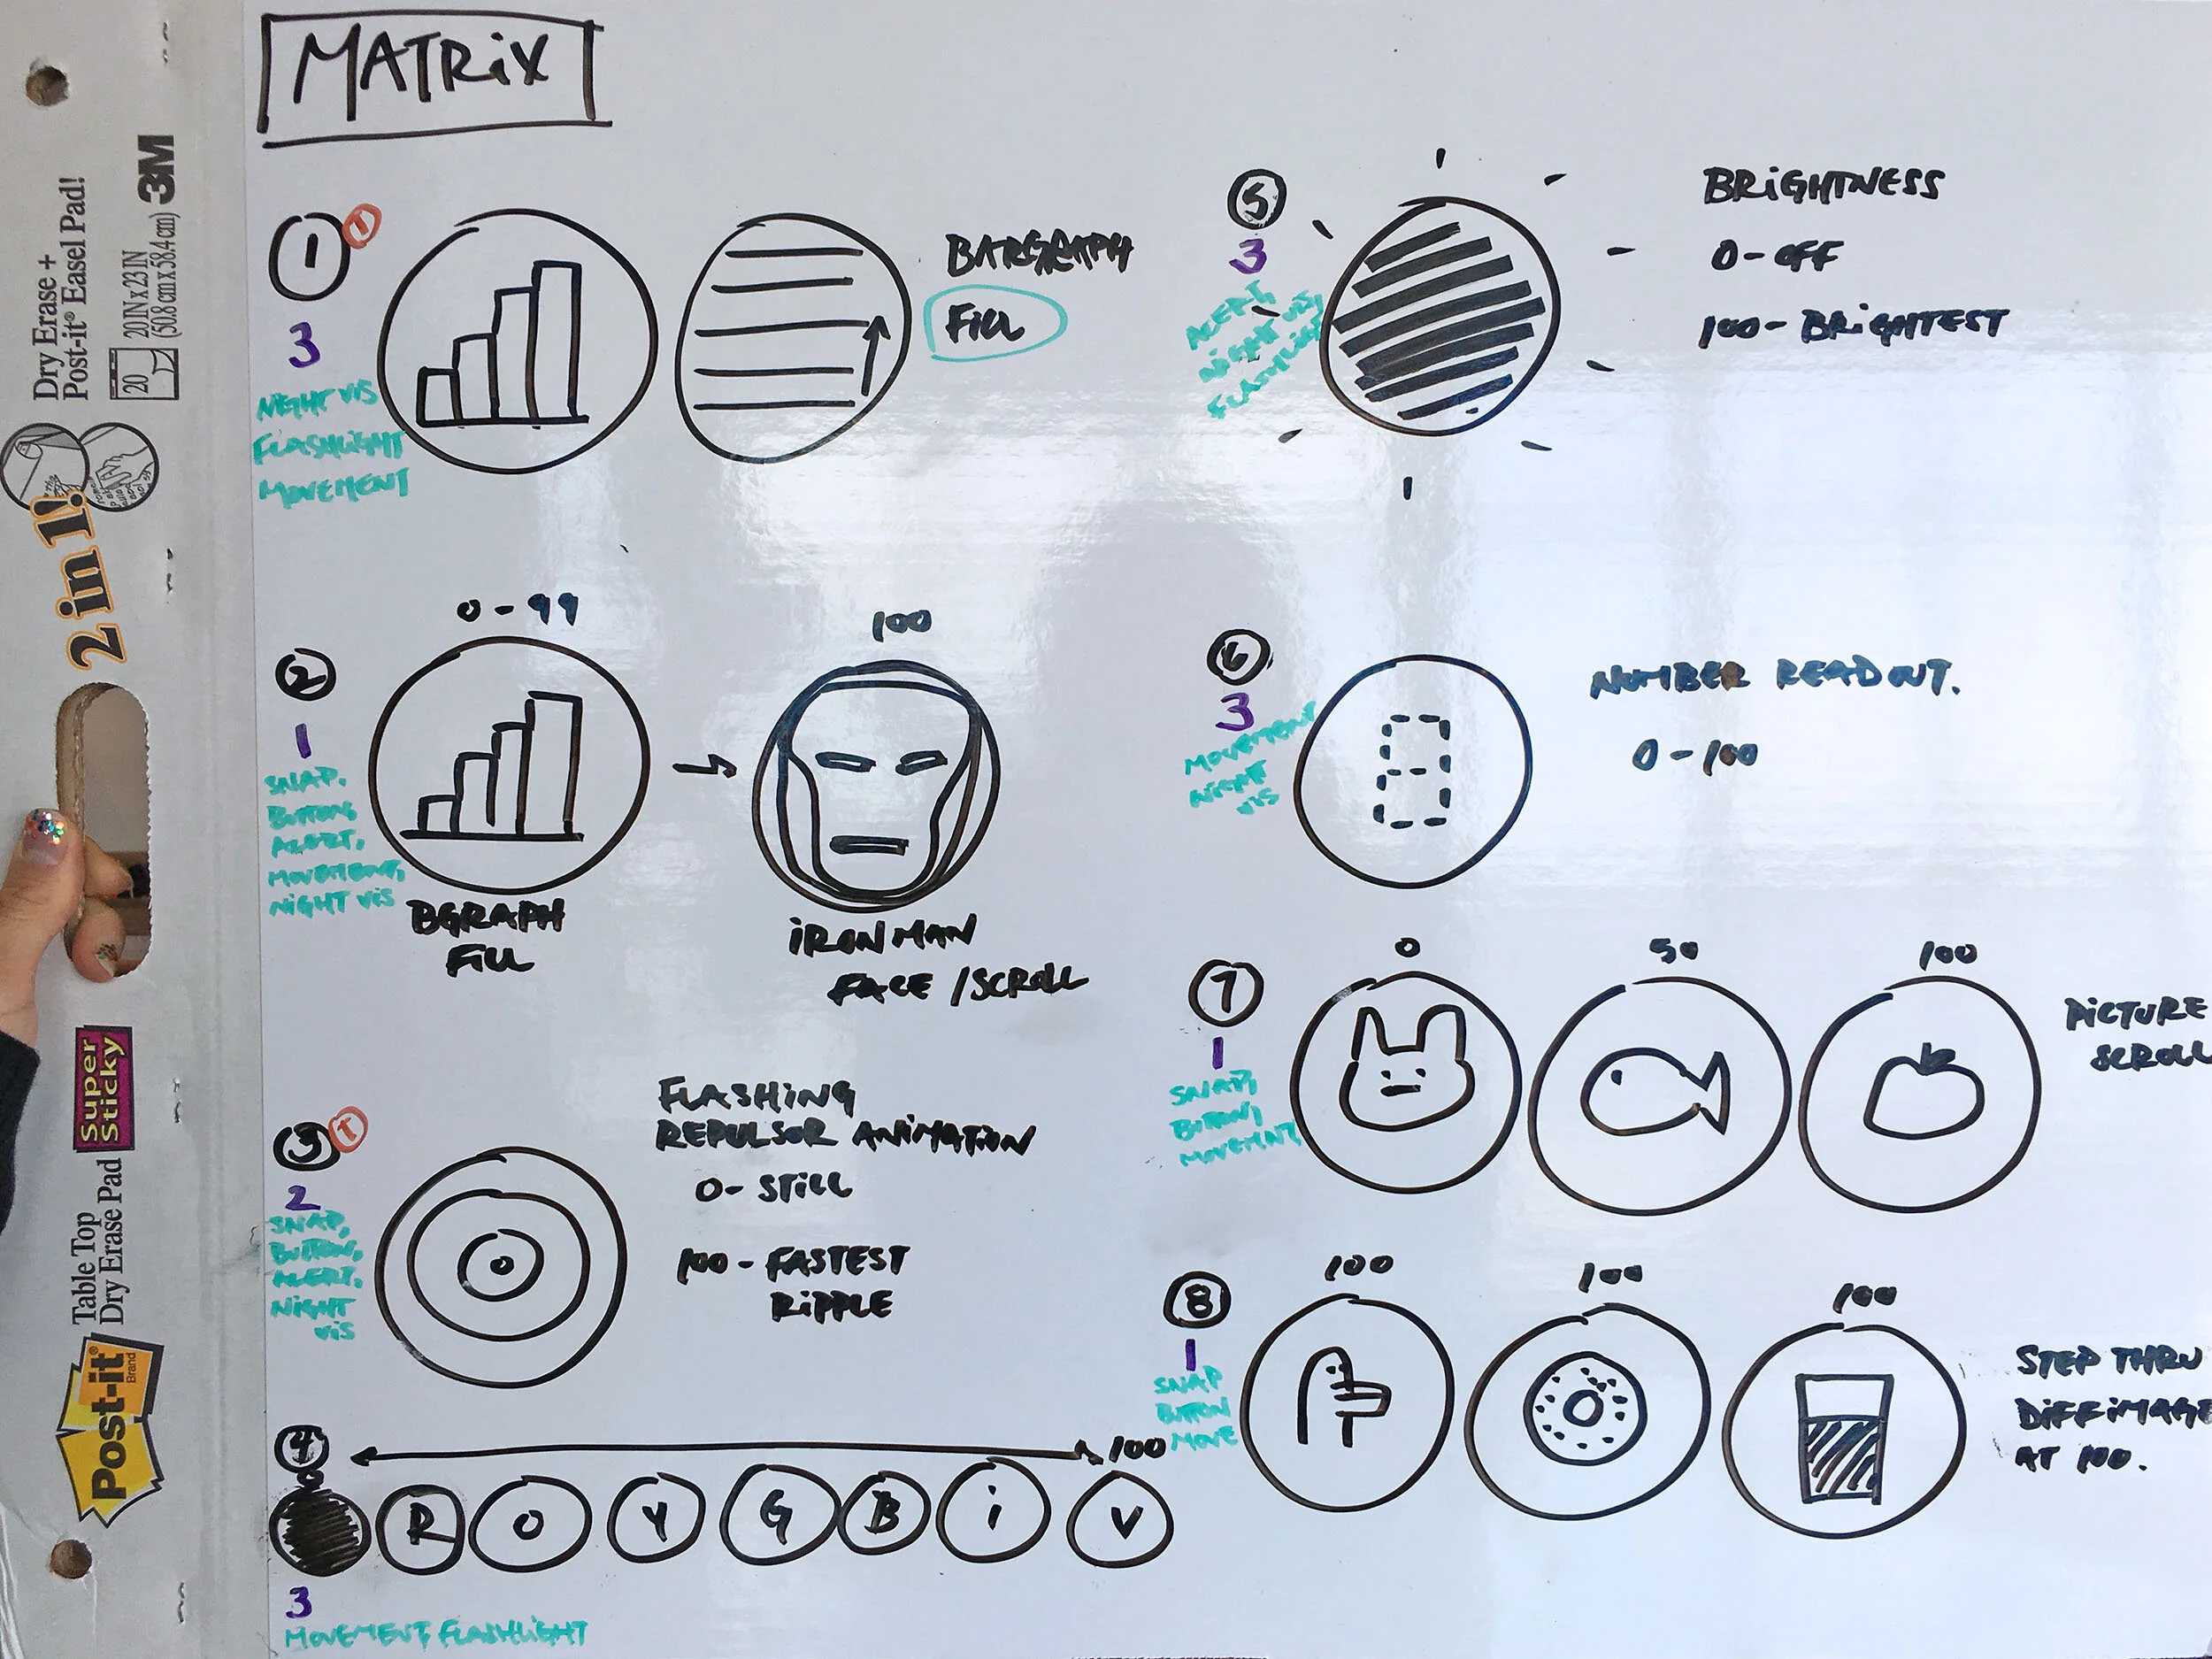 MATRiX
1
T
3
NIGHT VIS
FLASHLIGHT
MOVEMENT
BARGRAPH
FILL
2
1
SNAP,
BUTTON,
ALERT,
MOVEMENT,
NIGHT VIS
0-99
BGRAPH
FILL
100
iRONMAN
FACE /SCROLL
3
T
2
SNAP,
BUTTON,
ALERT,
NIGHT
VIS
FLASHING
REPULSOR ANIMATION
0- STILL
100 - FASTEST
RIPPLE
4
0
100
R O Y G B i V
3
MOVEMENT, FLASHLIGHT
5
3
ALERT,
NIGHT VIS,
FLASHLIGHT
BRiGHTNESS
0-OFF
100- BRIGHTEST
6
3
MOVEMENT
NIGHT
VIS
NUMBER READOUT.
0-100
7
1
SNAP,
BUTTON,
MOVEMENT,
0
50
100
PICTURE
SCROLL
8
1
SNAP
BUTTON
MOVE
100
100
100
STEP THRU
DIFF iMAGE
AT 100.
Dry Erase +
Post-it® Easel Pad!
20
20 IN x 23 IN
(50.8 cm x 58.4 cm)
3M
2 in 1!
Super
Sticky
Table Top
Dry Erase Pad
Post-it®
Brand